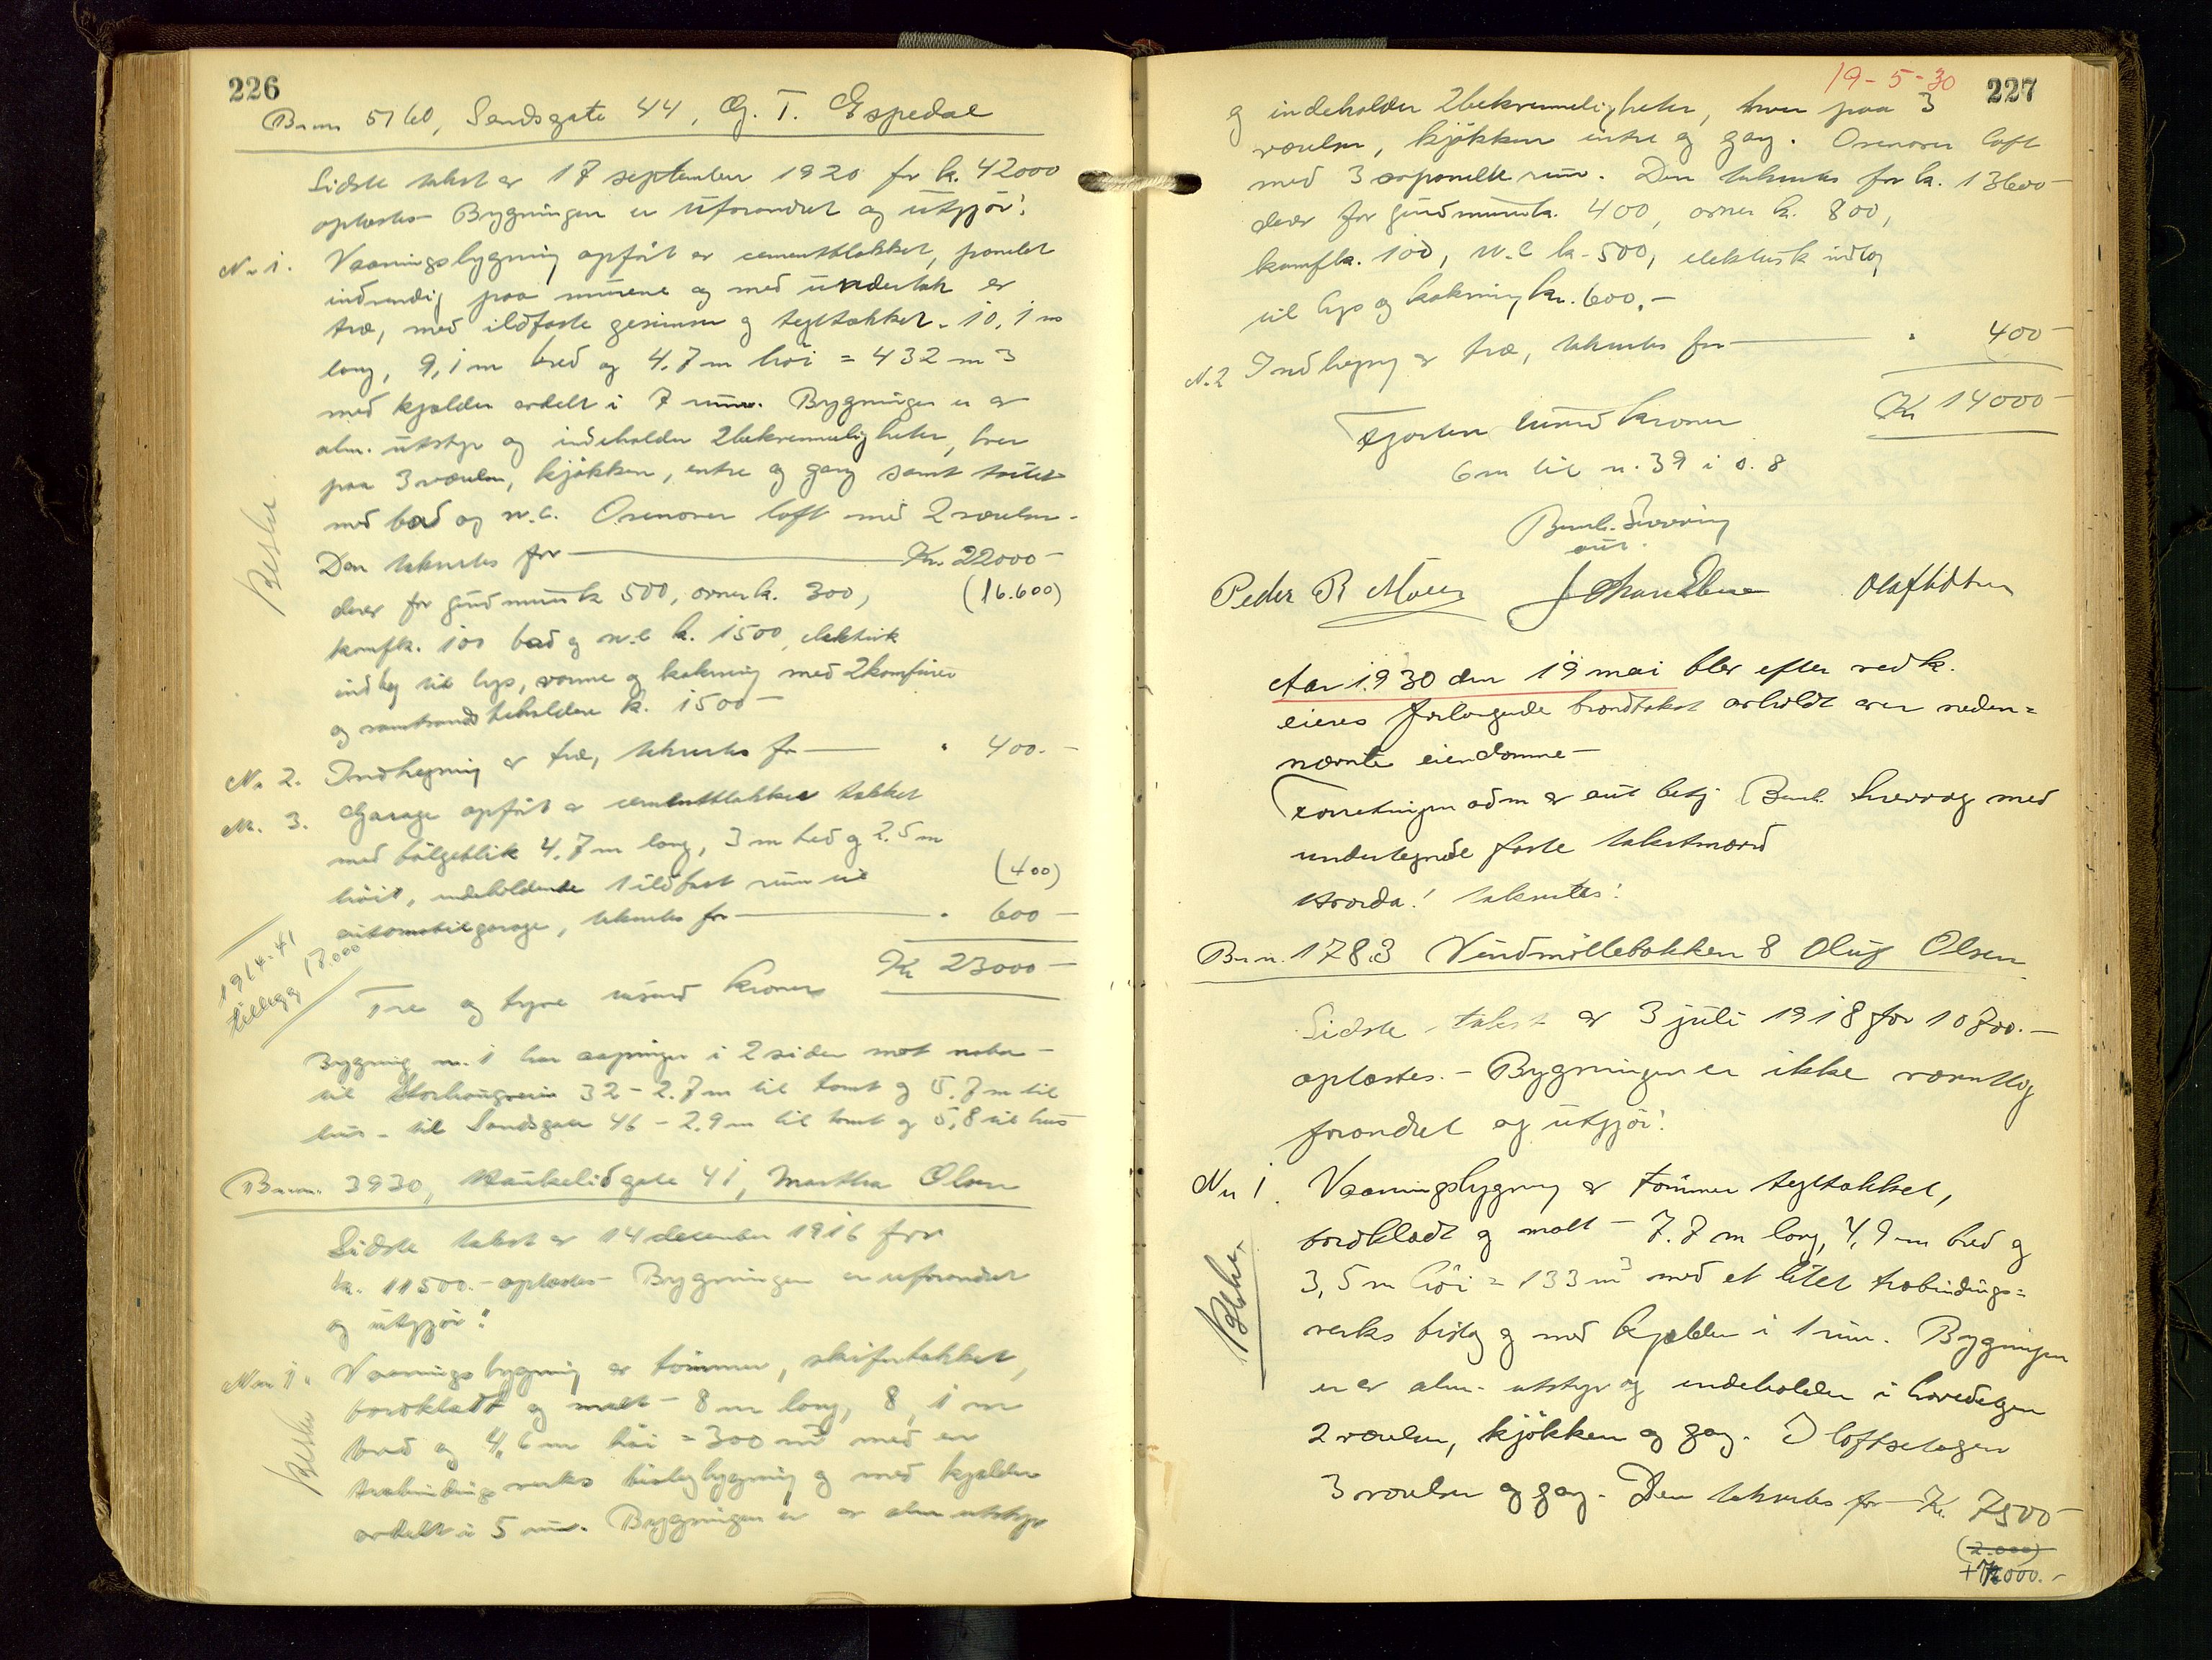 226
Br.nr. 5760, Sandsgate 44, G. T. Espedal
Sidste takst er 17 september 1920 for k. 42000
oplæstes - Bygningen er uforandret og utgjør:
Nr 1. Vaaningsbygning opført av cementblokker, panelet
indvendig paa murene og med undertak av
træ, med ildfaste gesimser og tegltækket. 10,1 m
lang, 9,1 m bred og 4.7 m høi = 432 m3
med kjælder avdelt i 7 rum. Bygningen er av
alm. utstyr og indeholder 2 bekvemmeligheter, hver
paa 3 værelser, kjøkken, entre og gang samt toilet
med bad og w.c. Ovenover loft med 2 værelser.
Den takseres for Kr. 22000-
derav for grundmur k 500, ovner k. 300, (16.600)
komf k. 100 bad og w.c k. 1500, elektrisk
indlæg til lys, varme og kokning med 2 komfurer
og varmtvandsbeholdere k. 1500-
Nr 2. Indhegning av træ, takseres for " 400.-
Nr. 3. Garage opført av cementblokker tækket
med bølgeblik 4.7 m lang, 3 m bred og 2.5 m
høit, indeholdende 1 ildfast rum til (400)
automobilgarage, takseres for " 600-
Kr 23000-
Tre og tyve tusind kroner
tillegg
Bygning nr. 1 har aapninger i 2 sider mot nabo -
til Storhaugveien 32 - 2.7 m til tomt og 5.7 m til
hus - til Sandsgate 46 - 2.9 m til tomt og 5,8 til hus
Br.nr. 3930, Haukeligate 41, Martha Olsen
Sidste takst er 14 december 1916 for
k. 11500.- oplæstes - Bygningen er uforandret
og utgjør:
Nr 1. Vaaningsbygning av tømmer, skifertækket,
bordklædt og malt - 8 m lang, 8,1 m
bred og 4,6 m høi = 300 m3 med en
træbindingsverks bislagbygning og med kjælder
avdelt i 5 rum. Bygningen er av alm utstyr
19-5-30
227
og indeholder 2 bekvemmeligheter, hver paa 3
værelser, kjøkken entre og gang. Ovenover loft
med 3 oppanelte rum. Den takseres for k. 13600-
derav for grundmur k. 400, ovner k. 800,
komf k. 100, w.c k. 500, elektrisk indlæg
til lys og kokning kr. 600.-
N. 2 Indhegning av træ, takseres for " 400-
Kr 14000-
Fjorten tusind kroner
6 m til n. 39 i o. 8
Beskr.
aut.
Peder R
Aar 1930 den 19 mai blev efter vedk.
eieres forlangende brandtakst avholdt over neden=
nævnte eiendomme -
Forretningen adm av aut betj. med
undertegnede faste takstmænd
Hvorda! takseres:
Br.nr. 1783 Vindmøllebakken 8 Oluf Olsen
Sidste takst er 3 juli 1918 for 10700.-
oplæstes. - Bygningen er ikke væsentlig
forandret og utgjør:
Nr 1. Vaaningsbygning av tømmer tegltækket,
bordklædt og malt - 7.7 m lang, 4,9 m bred og
3,5 m høi = 133 m3 med et litet træbindings=
verks bislag og med kjælder i 1 rum. Bygningen
er av alm. utstyr og indeholder i hovedetagen
2 værelser, kjøkken og gang. I loftsetagen
3 værelser og gang. Den takseres for Kr. 7500-
(2.000)